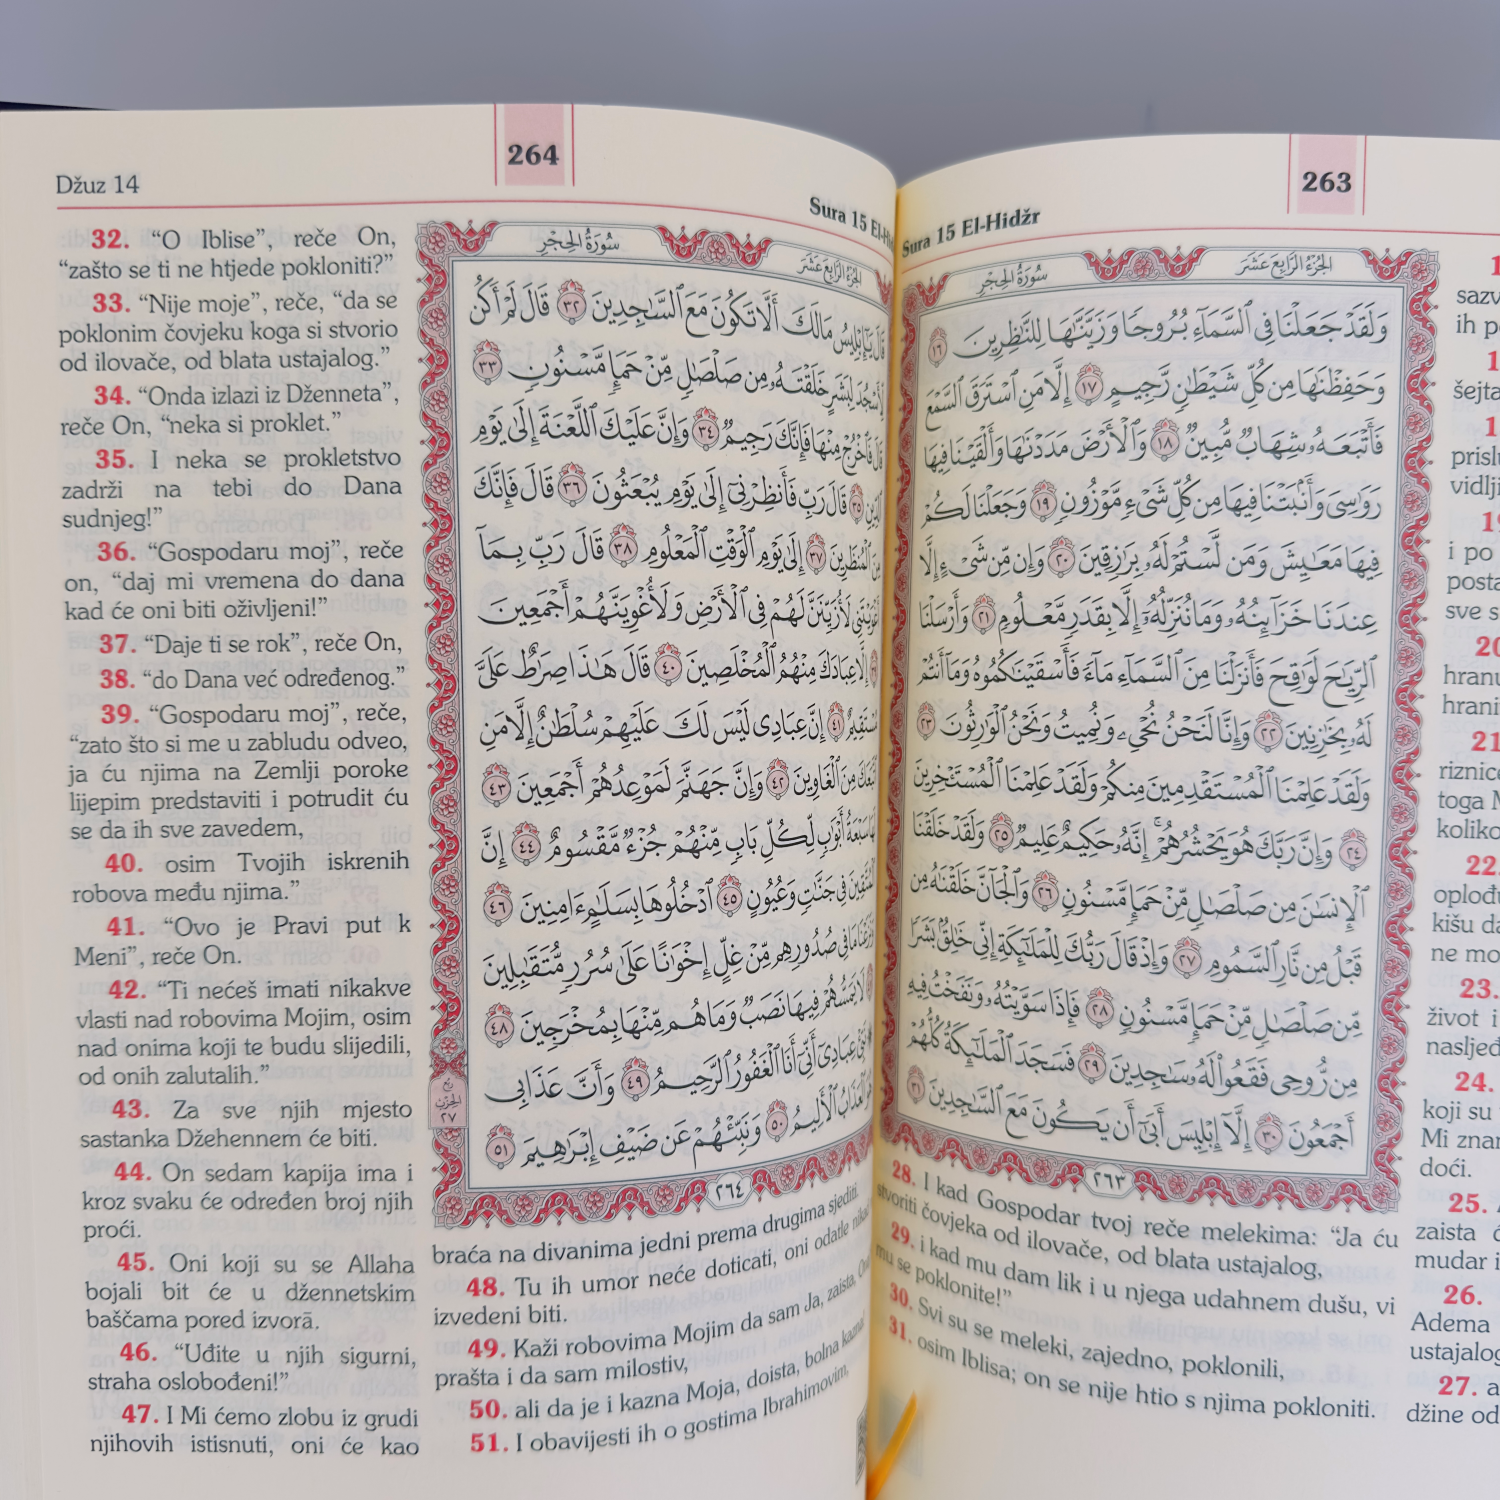 264
Džuz 14
Sura 15 El-Hi
32. “O Iblise”, reče On,
“zašto se ti ne htjede pokloniti?”
33. “Nije moje”, reče, “da se
poklonim čovjeku koga si stvorio
od ilovače, od blata ustajalog.”
34. “Onda izlazi iz Dženneta”,
reče On, “neka si proklet.”
35. I neka se prokletstvo
zadrži na tebi do Dana
sudnjeg!”
36. “Gospodaru moj”, reče
on, “daj mi vremena do dana
kad će oni biti oživljeni!”
37. “Daje ti se rok”, reče On,
38. “do Dana već određenog.”
39. “Gospodaru moj”, reče,
“zato što si me u zabludu odveo,
ja ću njima na Zemlji poroke
lijepim predstaviti i potrudit ću
se da ih sve zavedem,
40. osim Tvojih iskrenih
robova među njima.”
41. “Ovo je Pravi put k
Meni”, reče On.
42. “Ti nećeš imati nikakve
vlasti nad robovima Mojim, osim
nad onima koji te budu slijedili,
od onih zalutalih.”
43. Za sve njih mjesto
sastanka Džehennem će biti.
44. On sedam kapija ima i
kroz svaku će određen broj njih
proći.
45. Oni koji su se Allaha
bojali bit će u džennetskim
baščama pored izvorā.
46. “Uđite u njih sigurni,
straha oslobođeni!”
47. I Mi ćemo zlobu iz grudi
njihovih istisnuti, oni će kao
الجزء الرابع عشر
سُورَةُ الحِجْرِ
قَالَ يَٰٓإِبْلِيسُ مَالَكَ أَلَّا تَكُونَ مَعَ ٱلسَّٰجِدِينَ ٣٢ قَالَ لَمْ أَكُن
لِّأَسْجُدَ لِبَشَرٍ خَلَقْتَهُۥ مِن صَلْصَٰلٍ مِّنْ حَمَإٍ مَّسْنُونٍ ٣٣
قَالَ فَٱخْرُجْ مِنْهَا فَإِنَّكَ رَجِيمٌ ٣٤ وَإِنَّ عَلَيْكَ ٱللَّعْنَةَ إِلَىٰ يَوْمِ
ٱلدِّينِ ٣٥ قَالَ رَبِّ فَأَنظِرْنِىٓ إِلَىٰ يَوْمِ يُبْعَثُونَ ٣٦ قَالَ فَإِنَّكَ
مِنَ ٱلْمُنظَرِينَ ٣٧ إِلَىٰ يَوْمِ ٱلْوَقْتِ ٱلْمَعْلُومِ ٣٨ قَالَ رَبِّ بِمَآ
أَغْوَيْتَنِى لَأُزَيِّنَنَّ لَهُمْ فِى ٱلْأَرْضِ وَلَأُغْوِيَنَّهُمْ أَجْمَعِينَ
٣٩ إِلَّا عِبَادَكَ مِنْهُمُ ٱلْمُخْلَصِينَ ٤٠ قَالَ هَٰذَا صِرَٰطٌ عَلَىَّ
مُسْتَقِيمٌ ٤١ إِنَّ عِبَادِى لَيْسَ لَكَ عَلَيْهِمْ سُلْطَٰنٌ إِلَّا مَنِ
ٱتَّبَعَكَ مِنَ ٱلْغَاوِينَ ٤٢ وَإِنَّ جَهَنَّمَ لَمَوْعِدُهُمْ أَجْمَعِينَ ٤٣
لَهَا سَبْعَةُ أَبْوَٰبٍ لِّكُلِّ بَابٍ مِّنْهُمْ جُزْءٌ مَّقْسُومٌ ٤٤ إِنَّ
ٱلْمُتَّقِينَ فِى جَنَّٰتٍ وَعُيُونٍ ٤٥ ٱدْخُلُوهَا بِسَلَٰمٍ ءَامِنِينَ ٤٦
وَنَزَعْنَا مَا فِى صُدُورِهِم مِّنْ غِلٍّ إِخْوَٰنًا عَلَىٰ سُرُرٍ مُّتَقَٰبِلِينَ
٤٧ لَا يَمَسُّهُمْ فِيهَا نَصَبٌ وَمَا هُم مِّنْهَا بِمُخْرَجِينَ ٤٨
نَبِّئْ عِبَادِىٓ أَنِّىٓ أَنَا ٱلْغَفُورُ ٱلرَّحِيمُ ٤٩ وَأَنَّ عَذَابِى
هُوَ ٱلْعَذَابُ ٱلْأَلِيمُ ٥٠ وَنَبِّئْهُمْ عَن ضَيْفِ إِبْرَٰهِيمَ ٥١
ربع
الحزب
٢٧
٢٦٤
braća na divanima jedni prema drugima sjediti.
48. Tu ih umor neće doticati, oni odatle nikad
izvedeni biti.
49. Kaži robovima Mojim da sam Ja, zaista, On
prašta i da sam milostiv,
50. ali da je i kazna Moja, doista, bolna kazna!
51. I obavijesti ih o gostima Ibrahimovim,
263
Sura 15 El-Hidžr
الجزء الرابع عشر
سُورَةُ الحِجْرِ
وَلَقَدْ جَعَلْنَا فِى ٱلسَّمَآءِ بُرُوجًا وَزَيَّنَّٰهَا لِلنَّٰظِرِينَ ١٦
وَحَفِظْنَٰهَا مِن كُلِّ شَيْطَٰنٍ رَّجِيمٍ ١٧ إِلَّا مَنِ ٱسْتَرَقَ ٱلسَّمْعَ
فَأَتْبَعَهُۥ شِهَابٌ مُّبِينٌ ١٨ وَٱلْأَرْضَ مَدَدْنَٰهَا وَأَلْقَيْنَا فِيهَا
رَوَٰسِىَ وَأَنۢبَتْنَا فِيهَا مِن كُلِّ شَىْءٍ مَّوْزُونٍ ١٩ وَجَعَلْنَا لَكُمْ
فِيهَا مَعَٰيِشَ وَمَن لَّسْتُمْ لَهُۥ بِرَٰزِقِينَ ٢٠ وَإِن مِّن شَىْءٍ إِلَّا
عِندَنَا خَزَآئِنُهُۥ وَمَا نُنَزِّلُهُۥٓ إِلَّا بِقَدَرٍ مَّعْلُومٍ ٢١ وَأَرْسَلْنَا
ٱلرِّيَٰحَ لَوَٰقِحَ فَأَنزَلْنَا مِنَ ٱلسَّمَآءِ مَآءً فَأَسْقَيْنَٰكُمُوهُ وَمَآ أَنتُمْ
لَهُۥ بِخَٰزِنِينَ ٢٢ وَإِنَّا لَنَحْنُ نُحْىِۦ وَنُمِيتُ وَنَحْنُ ٱلْوَٰرِثُونَ ٢٣
وَلَقَدْ عَلِمْنَا ٱلْمُسْتَقْدِمِينَ مِنكُمْ وَلَقَدْ عَلِمْنَا ٱلْمُسْتَـْٔخِرِينَ
٢٤ وَإِنَّ رَبَّكَ هُوَ يَحْشُرُهُمْ ۚ إِنَّهُۥ حَكِيمٌ عَلِيمٌ ٢٥ وَلَقَدْ خَلَقْنَا
ٱلْإِنسَٰنَ مِن صَلْصَٰلٍ مِّنْ حَمَإٍ مَّسْنُونٍ ٢٦ وَٱلْجَآنَّ خَلَقْنَٰهُ مِن
قَبْلُ مِن نَّارِ ٱلسَّمُومِ ٢٧ وَإِذْ قَالَ رَبُّكَ لِلْمَلَٰٓئِكَةِ إِنِّى خَٰلِقٌۢ بَشَرًا
مِّن صَلْصَٰلٍ مِّنْ حَمَإٍ مَّسْنُونٍ ٢٨ فَإِذَا سَوَّيْتُهُۥ وَنَفَخْتُ فِيهِ
مِن رُّوحِى فَقَعُوا۟ لَهُۥ سَٰجِدِينَ ٢٩ فَسَجَدَ ٱلْمَلَٰٓئِكَةُ كُلُّهُمْ
أَجْمَعُونَ ٣٠ إِلَّآ إِبْلِيسَ أَبَىٰٓ أَن يَكُونَ مَعَ ٱلسَّٰجِدِينَ ٣١
٢٦٣
28. I kad Gospodar tvoj reče melekima: “Ja ću
stvoriti čovjeka od ilovače, od blata ustajalog,
29. i kad mu dam lik i u njega udahnem dušu, vi
mu se poklonite!”
30. Svi su se meleki, zajedno, poklonili,
31. osim Iblisa; on se nije htio s njima pokloniti.
1
sazv
ih p
1
šejta
1
prislu
vidlji
19
i po
posta
sve s
20
hranu
hrani
21
riznice
toga M
koliko
22.
oplođu
kišu da
ne mo
23.
život i
nasljeđ
24.
koji su
Mi znam
doći.
25.
zaista ć
mudar i
26.
Adema
ustajalog
27. a
džine od